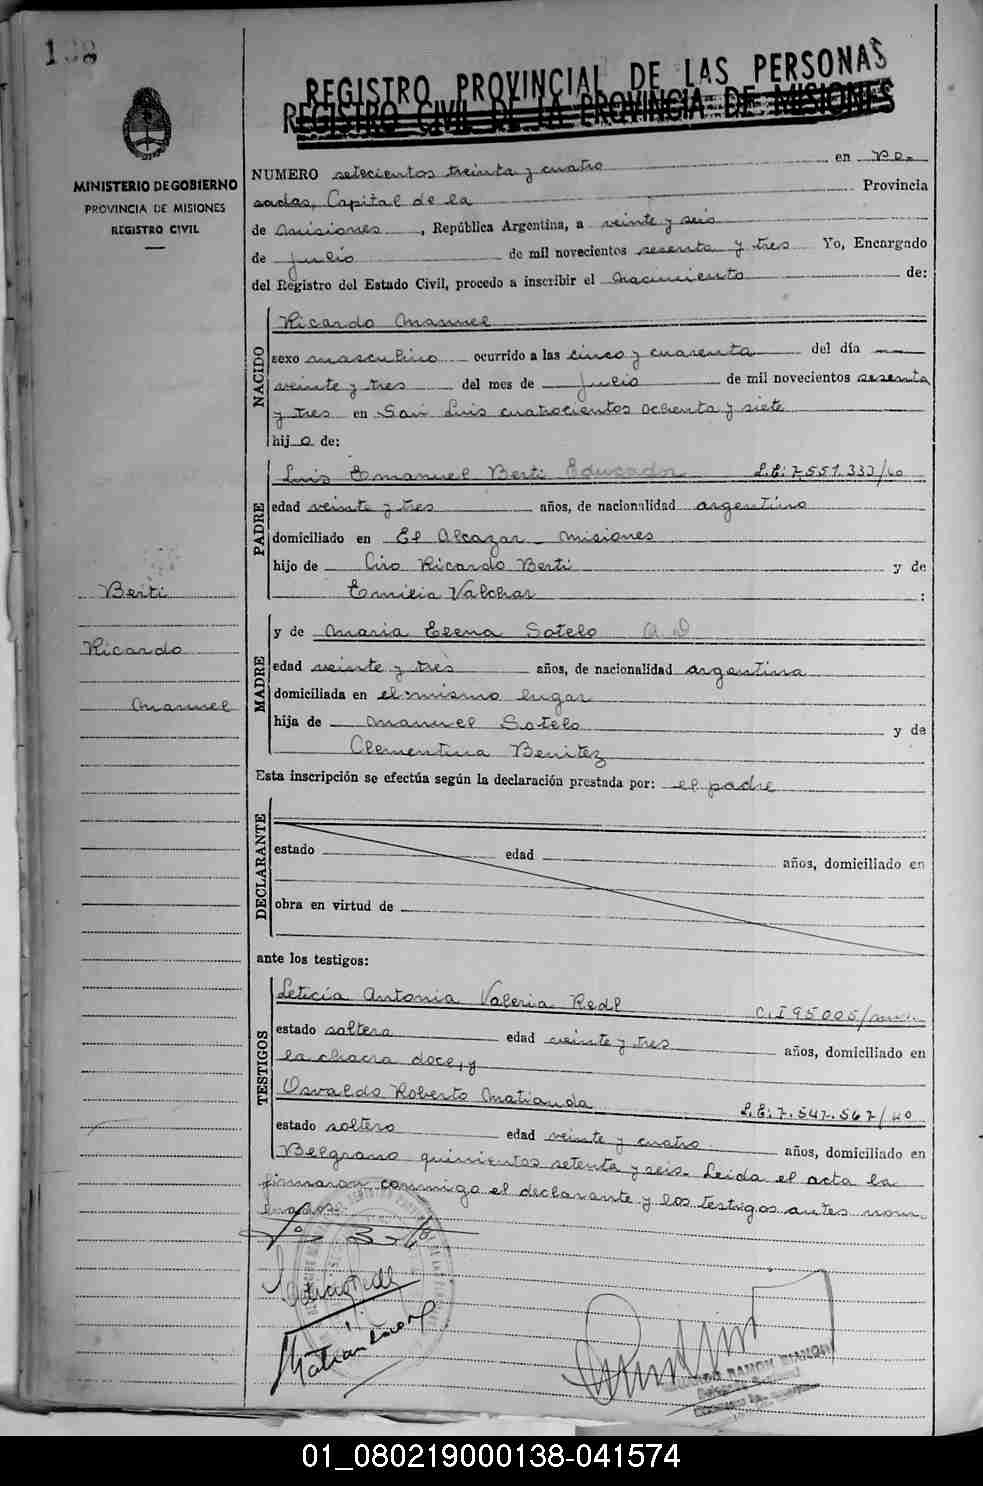 138
REGISTRO PROVINCIAL DE LAS PERSONAS
REGISTRO CIVIL DE LA PROVINCIA DE MISIONES
MINISTERIO DE GOBIERNO
PROVINCIA DE MISIONES
REGISTRO CIVIL
NUMERO setecientos treinta y cuatro en Po-
sadas, Capital de la Provincia
de Misiones, República Argentina, a veinte y seis
de julio de mil novecientos sesenta y tres Yo, Encargado
del Registro del Estado Civil, procedo a inscribir el nacimiento de:
NACIDO
Ricardo Manuel
sexo masculino ocurrido a las cinco y cuarenta del día
veinte y tres del mes de julio de mil novecientos sesenta
y tres en San Luis cuatrocientos ochenta y siete
hijo de:
PADRE
Luis Emanuel Berti Educador L.E: 7.551.333/40
edad veinte y tres años, de nacionalidad argentino
domiciliado en El Alcazar Misiones
hijo de Ciro Ricardo Berti y de
Emilia Valchar :
Berti
Ricardo
Manuel
MADRE
y de Maria Elena Sotelo
edad veinte y tres años, de nacionalidad argentina
domiciliada en el mismo lugar
hija de Manuel Sotelo y de
Clementina Benitez
Esta inscripción se efectúa según la declaración prestada por: el padre
DECLARANTE
estado edad años, domiciliado en
obra en virtud de
ante los testigos:
TESTIGOS
Leticia Antonia Valeria Redl C.I 95005/
estado soltera edad veinte y tres años, domiciliado en
la chacra doce, y
Osvaldo Roberto Matianda L.E: 7.547.567/40
estado soltero edad veinte y cuatro años, domiciliado en
Belgrano quinientos setenta y seis. Leida el acta la
firmaron conmigo el declarante y los testigos antes nom-
brados.
01_080219000138-041574